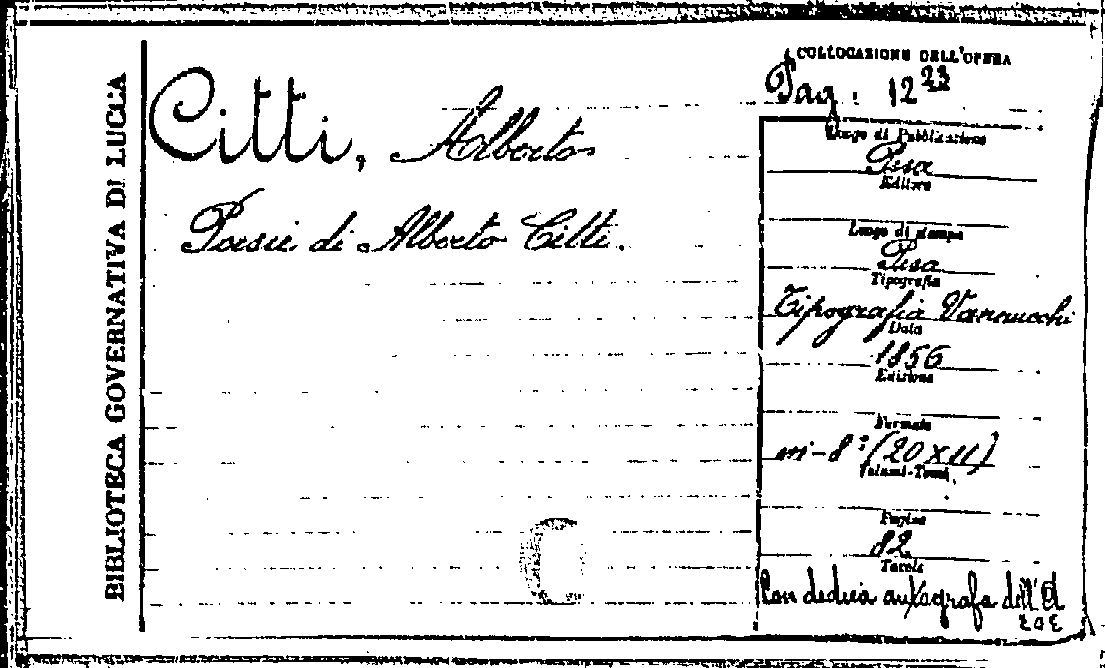 BIBLIOTECA GOVERNATIVA DI LUCCA
Citti, Alberto
Poesie di Alberto Citti.
C
COLLOCAZIONE DELL'OPERA
Pag. 12 23
Luogo di Pubblicazione
Pisa
Editore
Luogo di stampa
Pisa
Tipografia
Tipografia Vannucchi
Data
1856
Edizione
Formato
in-8° (20x11)
Volumi-Tomi
Pagine
82
Tavole
Con dedica autografa dell'A